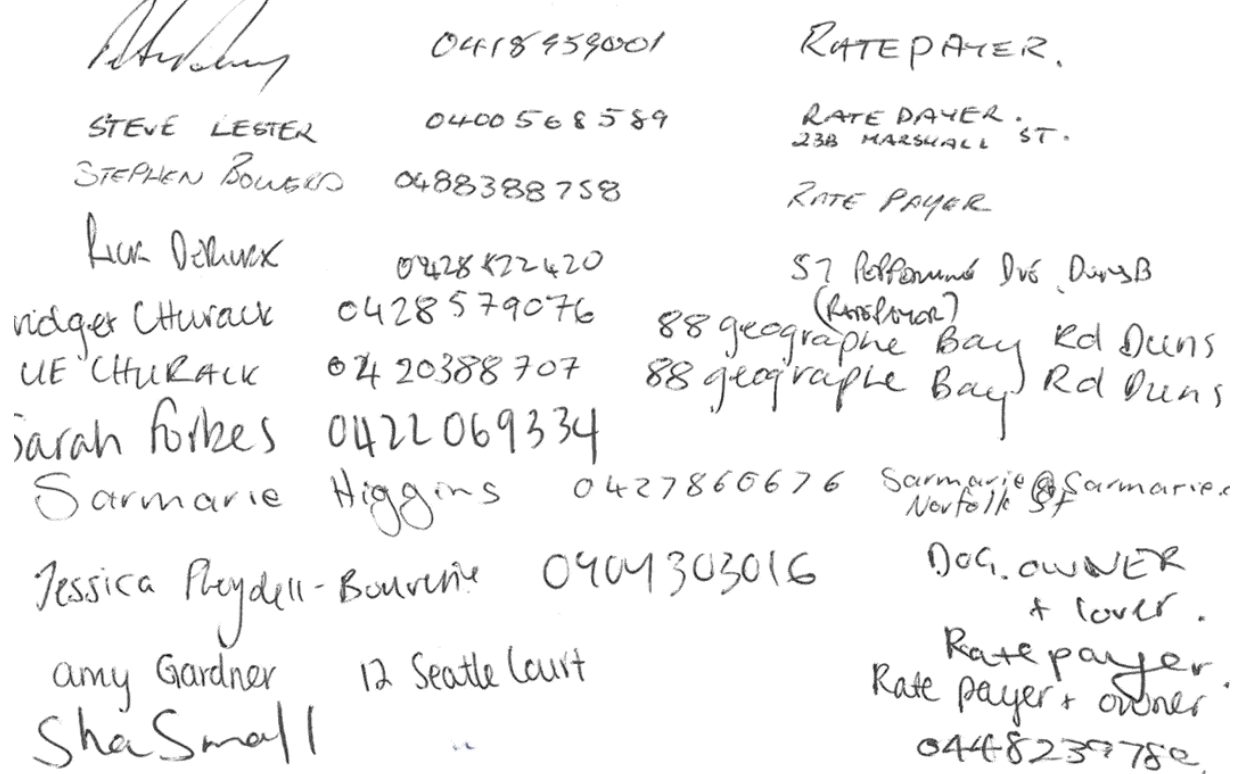 0418959001 RATEPAYER.
STEVE LESTER 0400568589 RATE PAYER.
23B MARSHALL ST.
STEPHEN BOWERS 0488388758 RATE PAYER
0428 822420 57 DVE DUNSB
(RATEPAYOR)
ridget CHurack 0428579076 88 geographe Bay Rd Duns
UE CHURACK 0420388707 88 geographe Bay Rd Duns
Sarah Forbes 0422069334
Sarmarie Higgins 0427860676 Sarmarie@Sarmarie.c
Norfolk St
Jessica Pleydell-Bouverie 0404303016 DOG. OWNER
+ lover.
Rate payer.
amy Gardner 12 Seatle Court Rate payer + owner
Sha Small " 0448239780